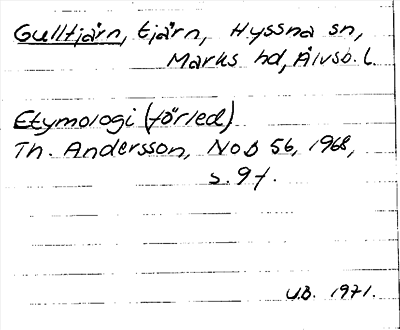 Gulltjärn, tjärn, Hyssna sn,
Marks hd, Älvsb. l.
Etymologi (förled)
Th. Andersson, NoB 56, 1968,
s. 9 f.
U.B. 1971.